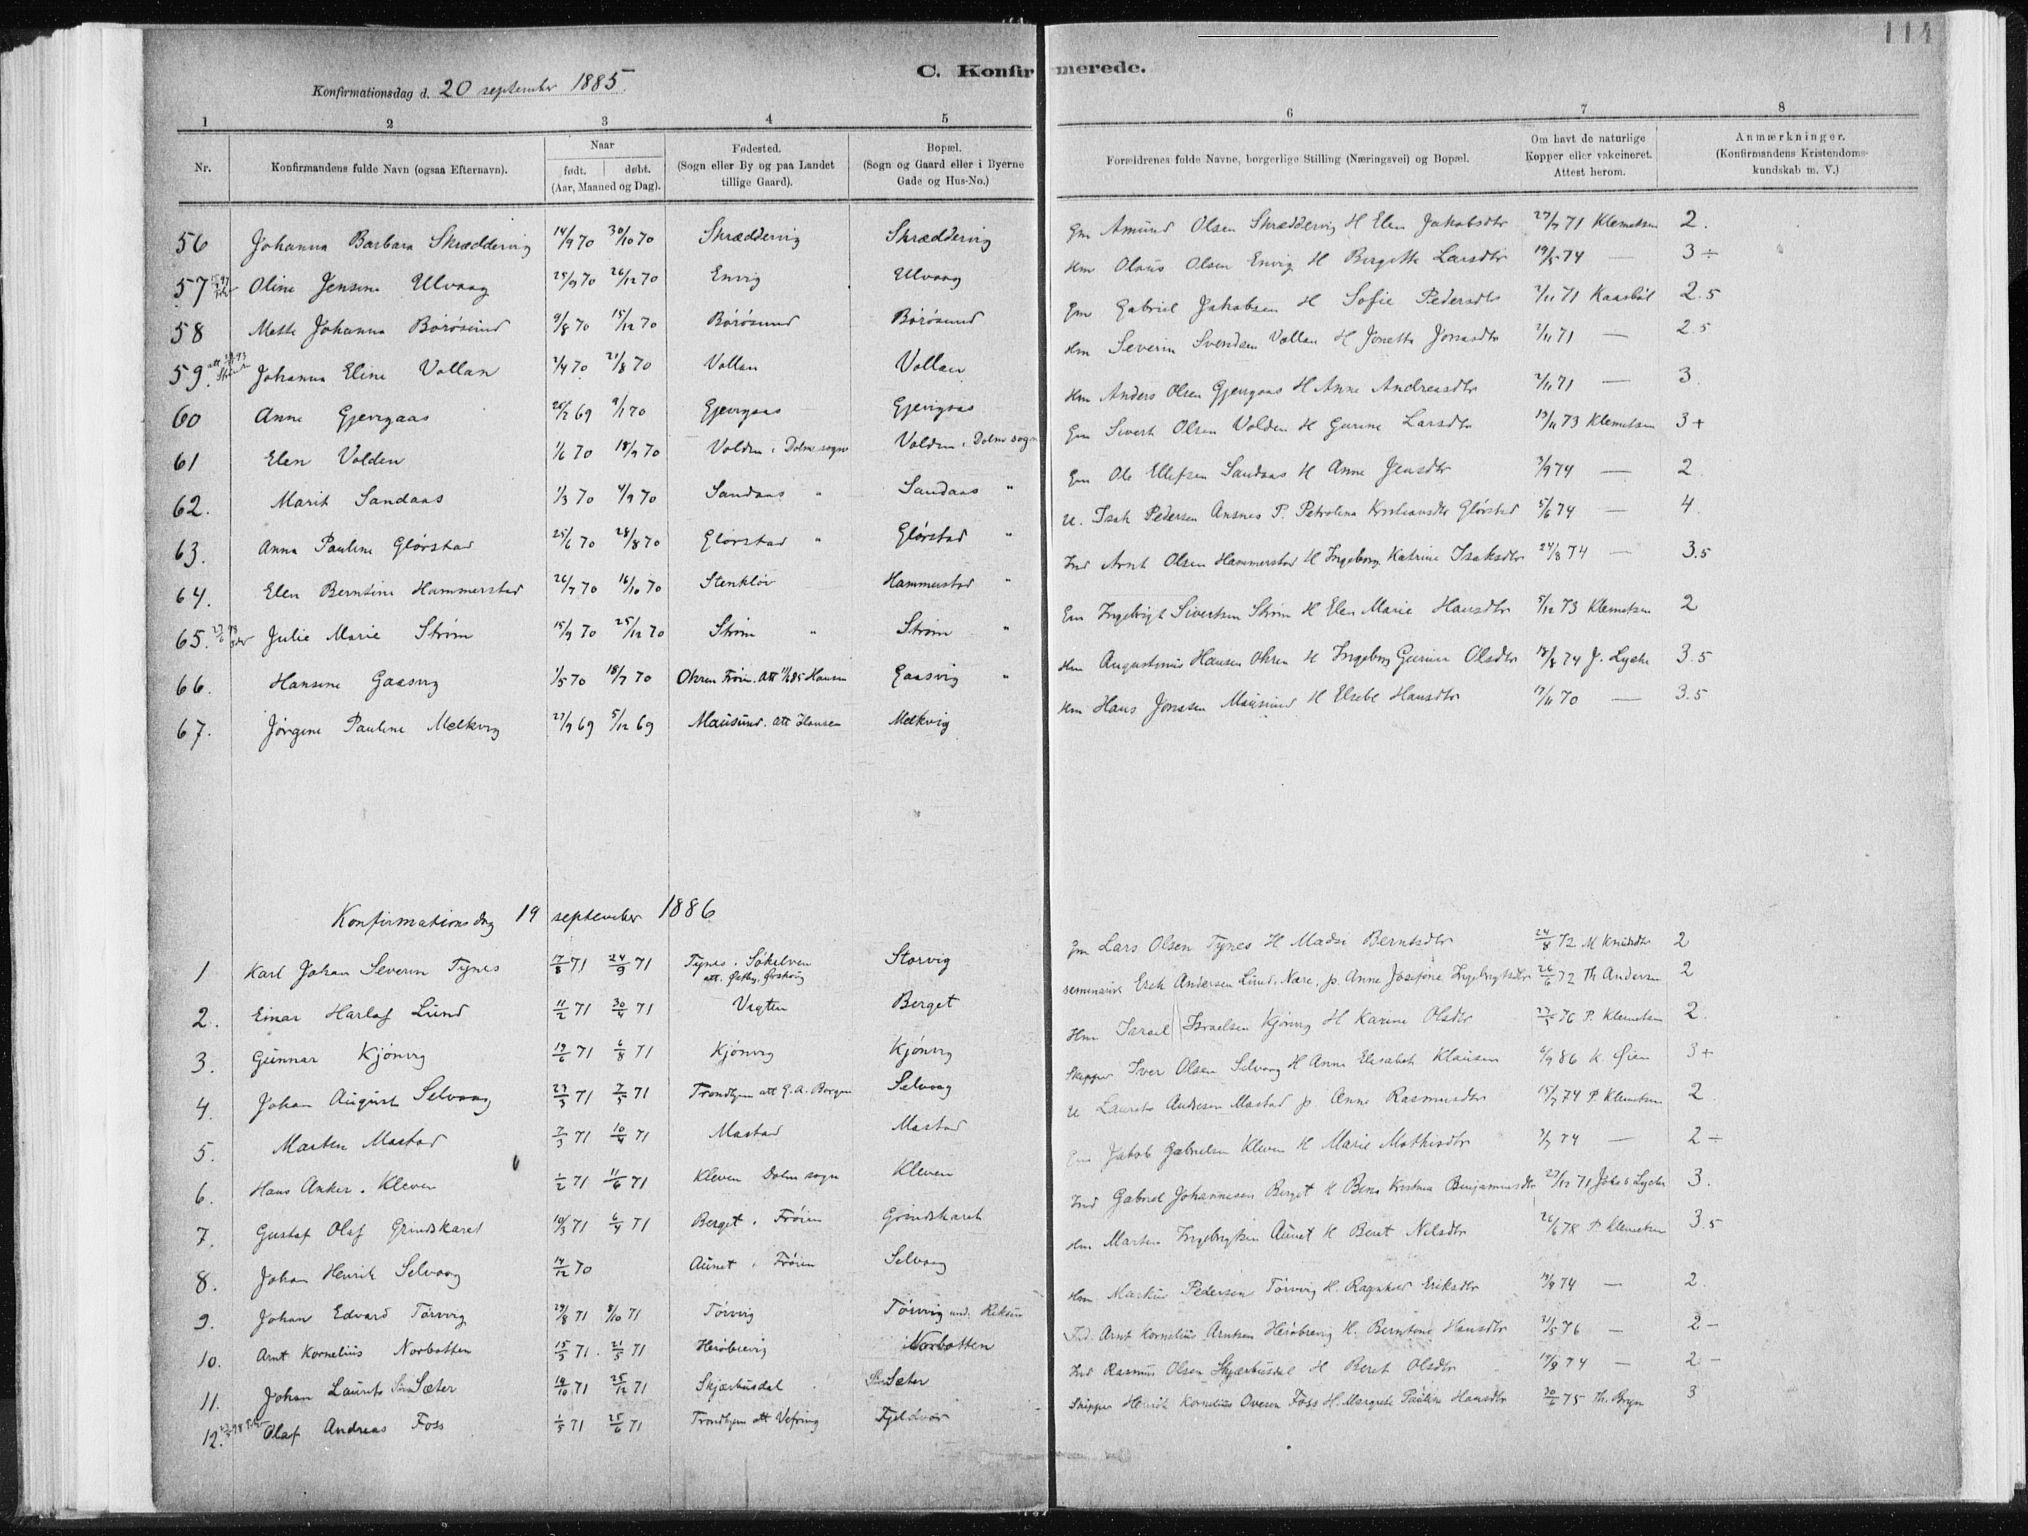 114
C. Konfirmerede.
Konfirmationsdag d. 20 september 1885.
1 2 3 4 5 6 7 8
Nr. Konfirmandens fulde Navn (ogsaa Efternavn). Naar født. døbt. (Aar, Maaned og Dag). Fødested. (Sogn eller By og paa Landet tillige Gaard). Bopæl. (Sogn og Gaard eller i Byerne Gade og Hus-No.) Forældrenes fulde Navne, borgerlige Stilling (Næringsvei) og Bopæl. Om havt de naturlige Kopper eller vakcineret. Attest herom. Anmærkninger. (Konfirmandens Kristendomskundskab m. V.)
56 Johanna Barbara Skræddervig 14/9 70 30/10 70 Skræddervig Skræddervig Gm Amund Olsen Skræddervig H Elen Jakobsdtr 27/7 71 Klemetsen 2.
57 Oline Jensine Ulvaag 25/9 70 26/12 70 Envig Ulvaag Hm Olaus Olsen Envig H Bergitte Larsdtr 19/5 74 — 3 ÷
58 Mette Johanna Börösund 9/8 70 15/12 70 Börösund Börösund Gm Gabriel Jakobsen H Sofie Pedersdtr 2/11 71 Kaasböl 2.5
59. Johanna Eline Vollan 2/4 70 21/8 70 Vollan Vollan Hm Severin Svendsen Vollan H Jonetta Jonasdtr 2/11 71 — 2.5
60 Anne Gjevigaas 28/12 69 9/1 70 Gjevigaas Gjevigaas Hm Anders Olsen Gjevigaas H Anne Andreasdtr 2/11 71 — 3.
61 Elen Volden 1/6 70 18/9 70 Volden i Dolm sogn Volden i Dolm sogn Gm Sivert Olsen Volden H Gurine Larsdtr 13/11 73 Klemetsen 3 +
62. Marit Sandaas 1/3 70 4/9 70 Sandaas " Sandaas " Gm Ole Ellefsen Sandaas H Anne Jensdtr 3/9 74 — 2.
63. Anna Pauline Glörstad 25/6 70 28/8 70 Glörstad " Glörstad " U. Isak Pedersen Ansnes P. Petrolina Kristiansdtr Glörstad 5/6 74 — 4.
64. Elen Berntine Hammerstad 26/7 70 16/10 70 Stenklöv Hammerstad " Ind Arnt Olsen Hammerstad H Ingeborg Katrine Isaksdtr 24/8 74 — 3.5
65. Julie Marie Ström 15/9 70 25/12 70 Ström " Ström " Gm Ingebrigt Sivertsen Ström H Elen Marie Hansdtr 5/12 73 Klemetsen 2
66. Hansine Gaasvig 1/5 70 18/7 70 Ohren Fröien. Att 11/6 85 Hansen Gaasvig " Hm Augustinus Hansen Ohren H Ingeborg Gurine Olsdtr 18/8 74 J. Lyche 3.5
67. Jörgine Pauline Melkvig 27/9 69 5/12 69 Mausund. att Hansen Melkvig Hm Hans Jonasen Mausund H Elsebe Hansdtr 17/11 70 — 3.5
Konfirmationsdag 19 september 1886
1 Karl Johan Severin Tynes 17/8 71 24/9 71 Tynes. Sökelven Storvig Gm Lars Olsen Tynes H Madsi Berntsdtr 24/8 72 M Knudtr 2
2. Einar Harlof Lund 11/2 71 30/4 71 Vigten Berget seminarist Erik Andersen Lund. Nærø. p. Anne Josefine Ingebrigtsdtr 26/6 72 Th Andersen 2
3. Gunnar Kjönvig 19/6 71 6/8 71 Kjönvig Kjönvig Hm Israel Israelsen Kjönvig H Karine Olsdtr 27/5 76 P. Klemetsen 2.
4. Johan August Selvaag 23/3 71 7/5 71 Trondhjem att G. A. Borgen Selvaag Skipper Iver Olsen Selvaag H Anne Elisabeth Klausen 6/9 86 K. Øien 3 +
5. Marten Mastad 7/3 71 10/4 71 Mastad Mastad U Laurits Andersen Mastad p. Anne Rasmusdtr 15/7 74 P. Klemetsen 2.
6. Hans Anker. Kleven 1/2 71 11/6 71 Kleven Dolm sogn Kleven Gm Jakob Gabrielsen Kleven H Marie Mathisdtr 3/7 74 — 2 ÷
7. Gustaf Olaf Grindskaret 10/3 71 6/4 71 Berget. Fröien Grindskaret Ind Gabriel Johannesen Berget H Bina Kristina Benjaminsdtr 27/12 71 Jakob Lyche 3.
8. Johan Henrik Selvaag 14/12 70 Aunet i Fröien Selvaag Hm Marten Ingebrigtsen Aunet H Beret Nilsdtr 26/6 78 P. Klemetsen 3.5
9. Johan Edvard Törvvig 29/8 71 8/10 71 Törvvig Törvvig und. Hm Markus Pedersen Törvvig H. Ragnhild Eriksdtr 19/9 74 — 2.
10. Arnt Kornelius Norbotten 15/3 71. 21/5 71 Heröbrevig Norbotten Ind. Arnt Kornelius Arntsen Heröbrevig H. Berntine Hansdtr 31/5 76 — 2 —
11. Johan Laurits Sæter 18/10 71 25/12 71 Skjærbusdal Sæter Ind Rasmus Olsen Skjærbusdal H Beret Olsdtr 19/9 74 — 2 —
12. Olaf Andreas Foss 1/5 71 25/6 71 Trondhjem att Vefring Fjeldvær Skipper Henrik Kornelius Ovesen Foss H. Margrete Pauline Hansdtr 30/6 75 Th. Bryn 3